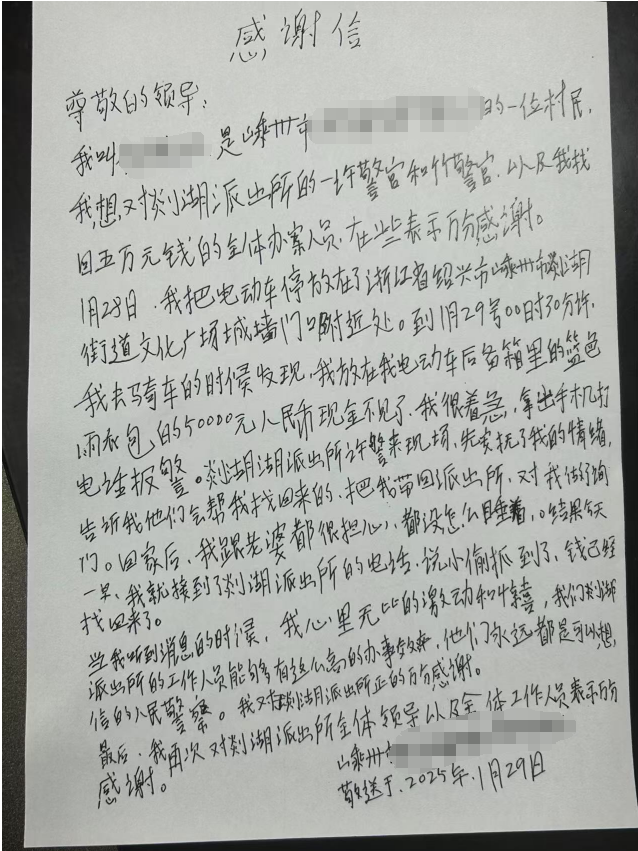 感谢信
尊敬的领导：
我叫 是嵊州市 的一位村民，
我想对剡湖派出所的一许警官和竹警官，以及我找
回五万元钱的全体办案人员，在此表示万分感谢。
1月28日，我把电动车停放在了浙江省绍兴市嵊州市剡湖
街道文化广场城墙门口附近处。到1月29号00时30分许，
我去骑车的时候发现，我放在我电动车后备箱里的篮色
雨衣包的50000元人民币现金不见了，我很着急，拿出手机打
电话报警。剡湖湖派出所许警来现场，先安抚了我的情绪，
告诉我他们会帮我找回来的，把我带回派出所，对我做了询
问。回家后，我跟老婆都很担心，都没怎么睡着。结果今天
一早，我就接到了剡湖派出所的电话，说小偷抓到了，钱已经
找回来了。
当我听到消息的时候，我心里无比的激动和惊喜，我们剡湖
派出所的工作人员能够有这么高的办事效率，他们永远都是可以想，
信的人民警察。我对剡湖派出所正的万分感谢。
最后，我再次对剡湖派出所全体领导以及全体工作人员表示万分
感谢。
嵊州市
敬送于，2025年，1月29日